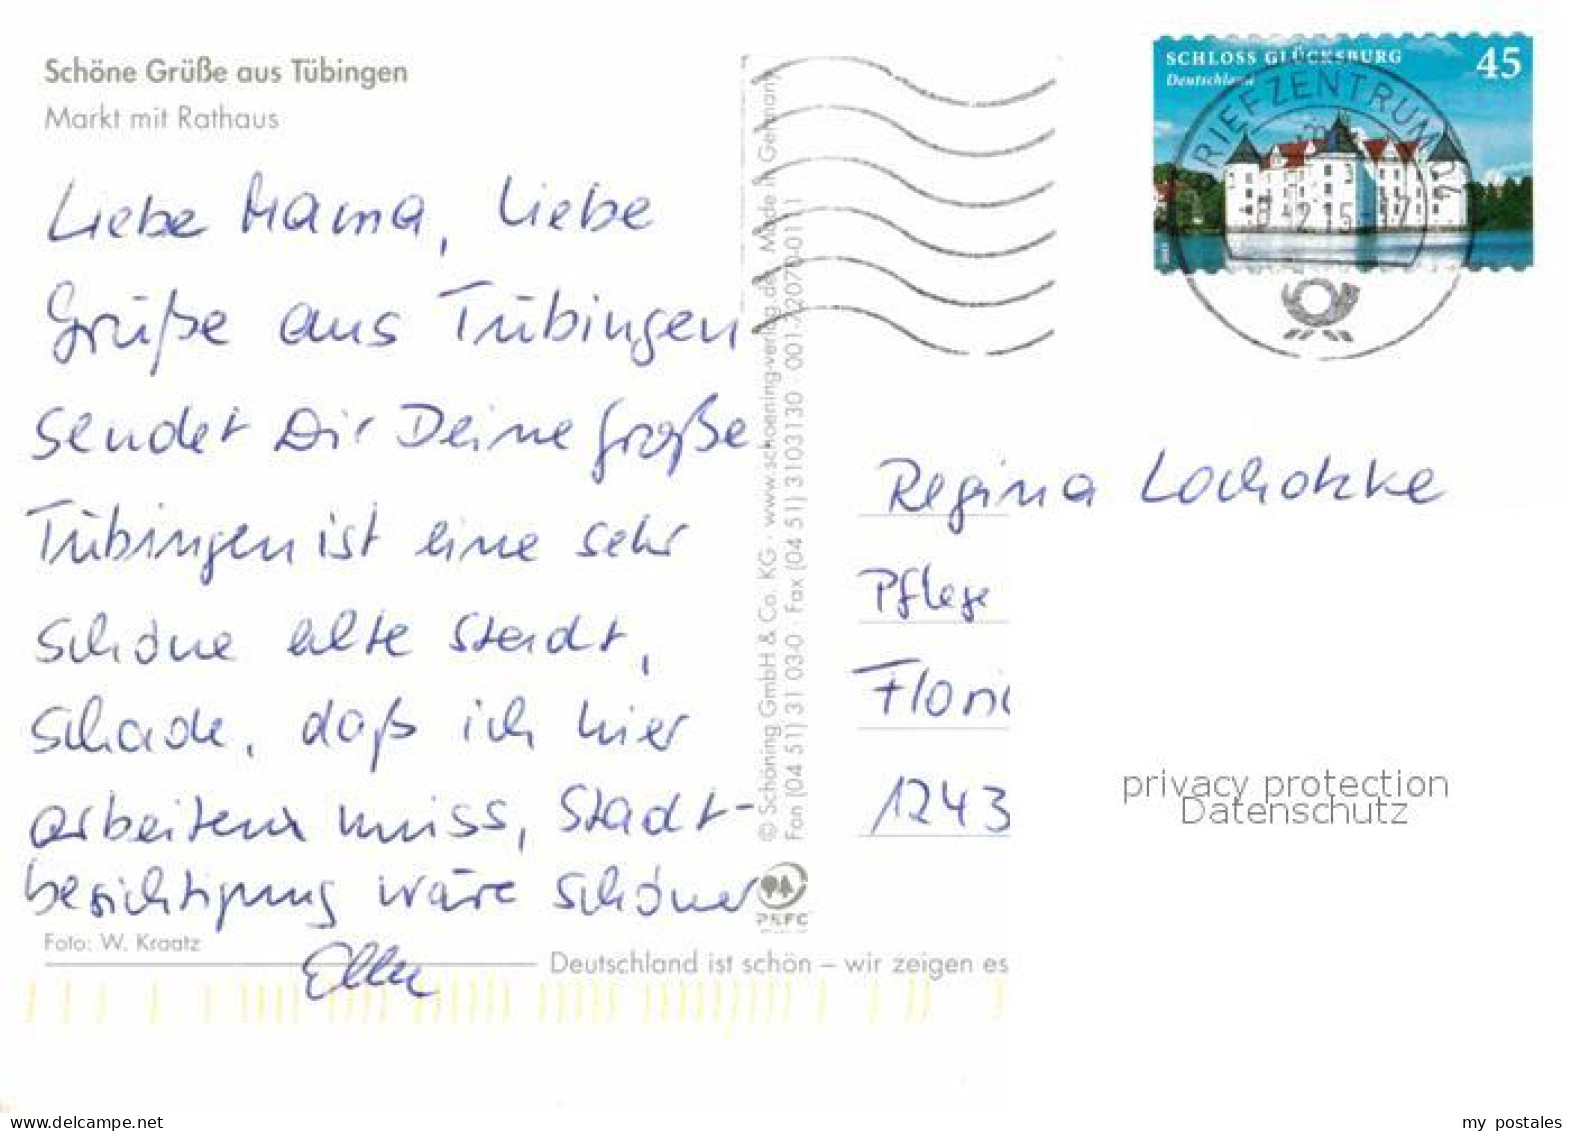 Schöne Grüße aus Tübingen
Markt mit Rathaus
Liebe Mama, Liebe
Grüße aus Tübingen
sendet Dir Deine Große
Tübingen ist eine sehr
schöne alte Stadt,
schade, daß ich hier
arbeiten muss, Stadt-
besichtigung wäre schöner
Foto: W. Kraatz
Deutschland ist schön – wir zeigen es
© Schöning GmbH & Co. KG · www.schoening-verlag.de · Made in Germany
Fon (04 51) 31 03-0 · Fax (04 51) 3103130 001-22070-0111
SCHLOSS GLÜCKSBURG
Deutschland
45
BRIEFZENTRUM
Regina
Pflege
Flori
1243
privacy protection
Datenschutz
www.ansichtskartenversand.com
my_postales